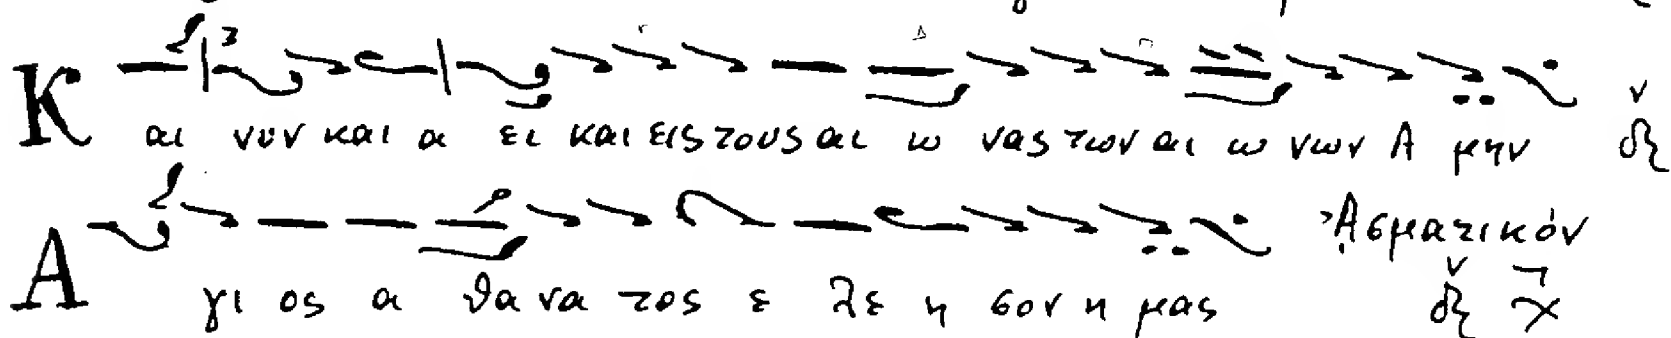 Και νυν και α ει και εις τους αι ω νας των αι ω νων Α μην
Α γι ος α θα να τος ε λε η σον η μας Ἀσματικόν